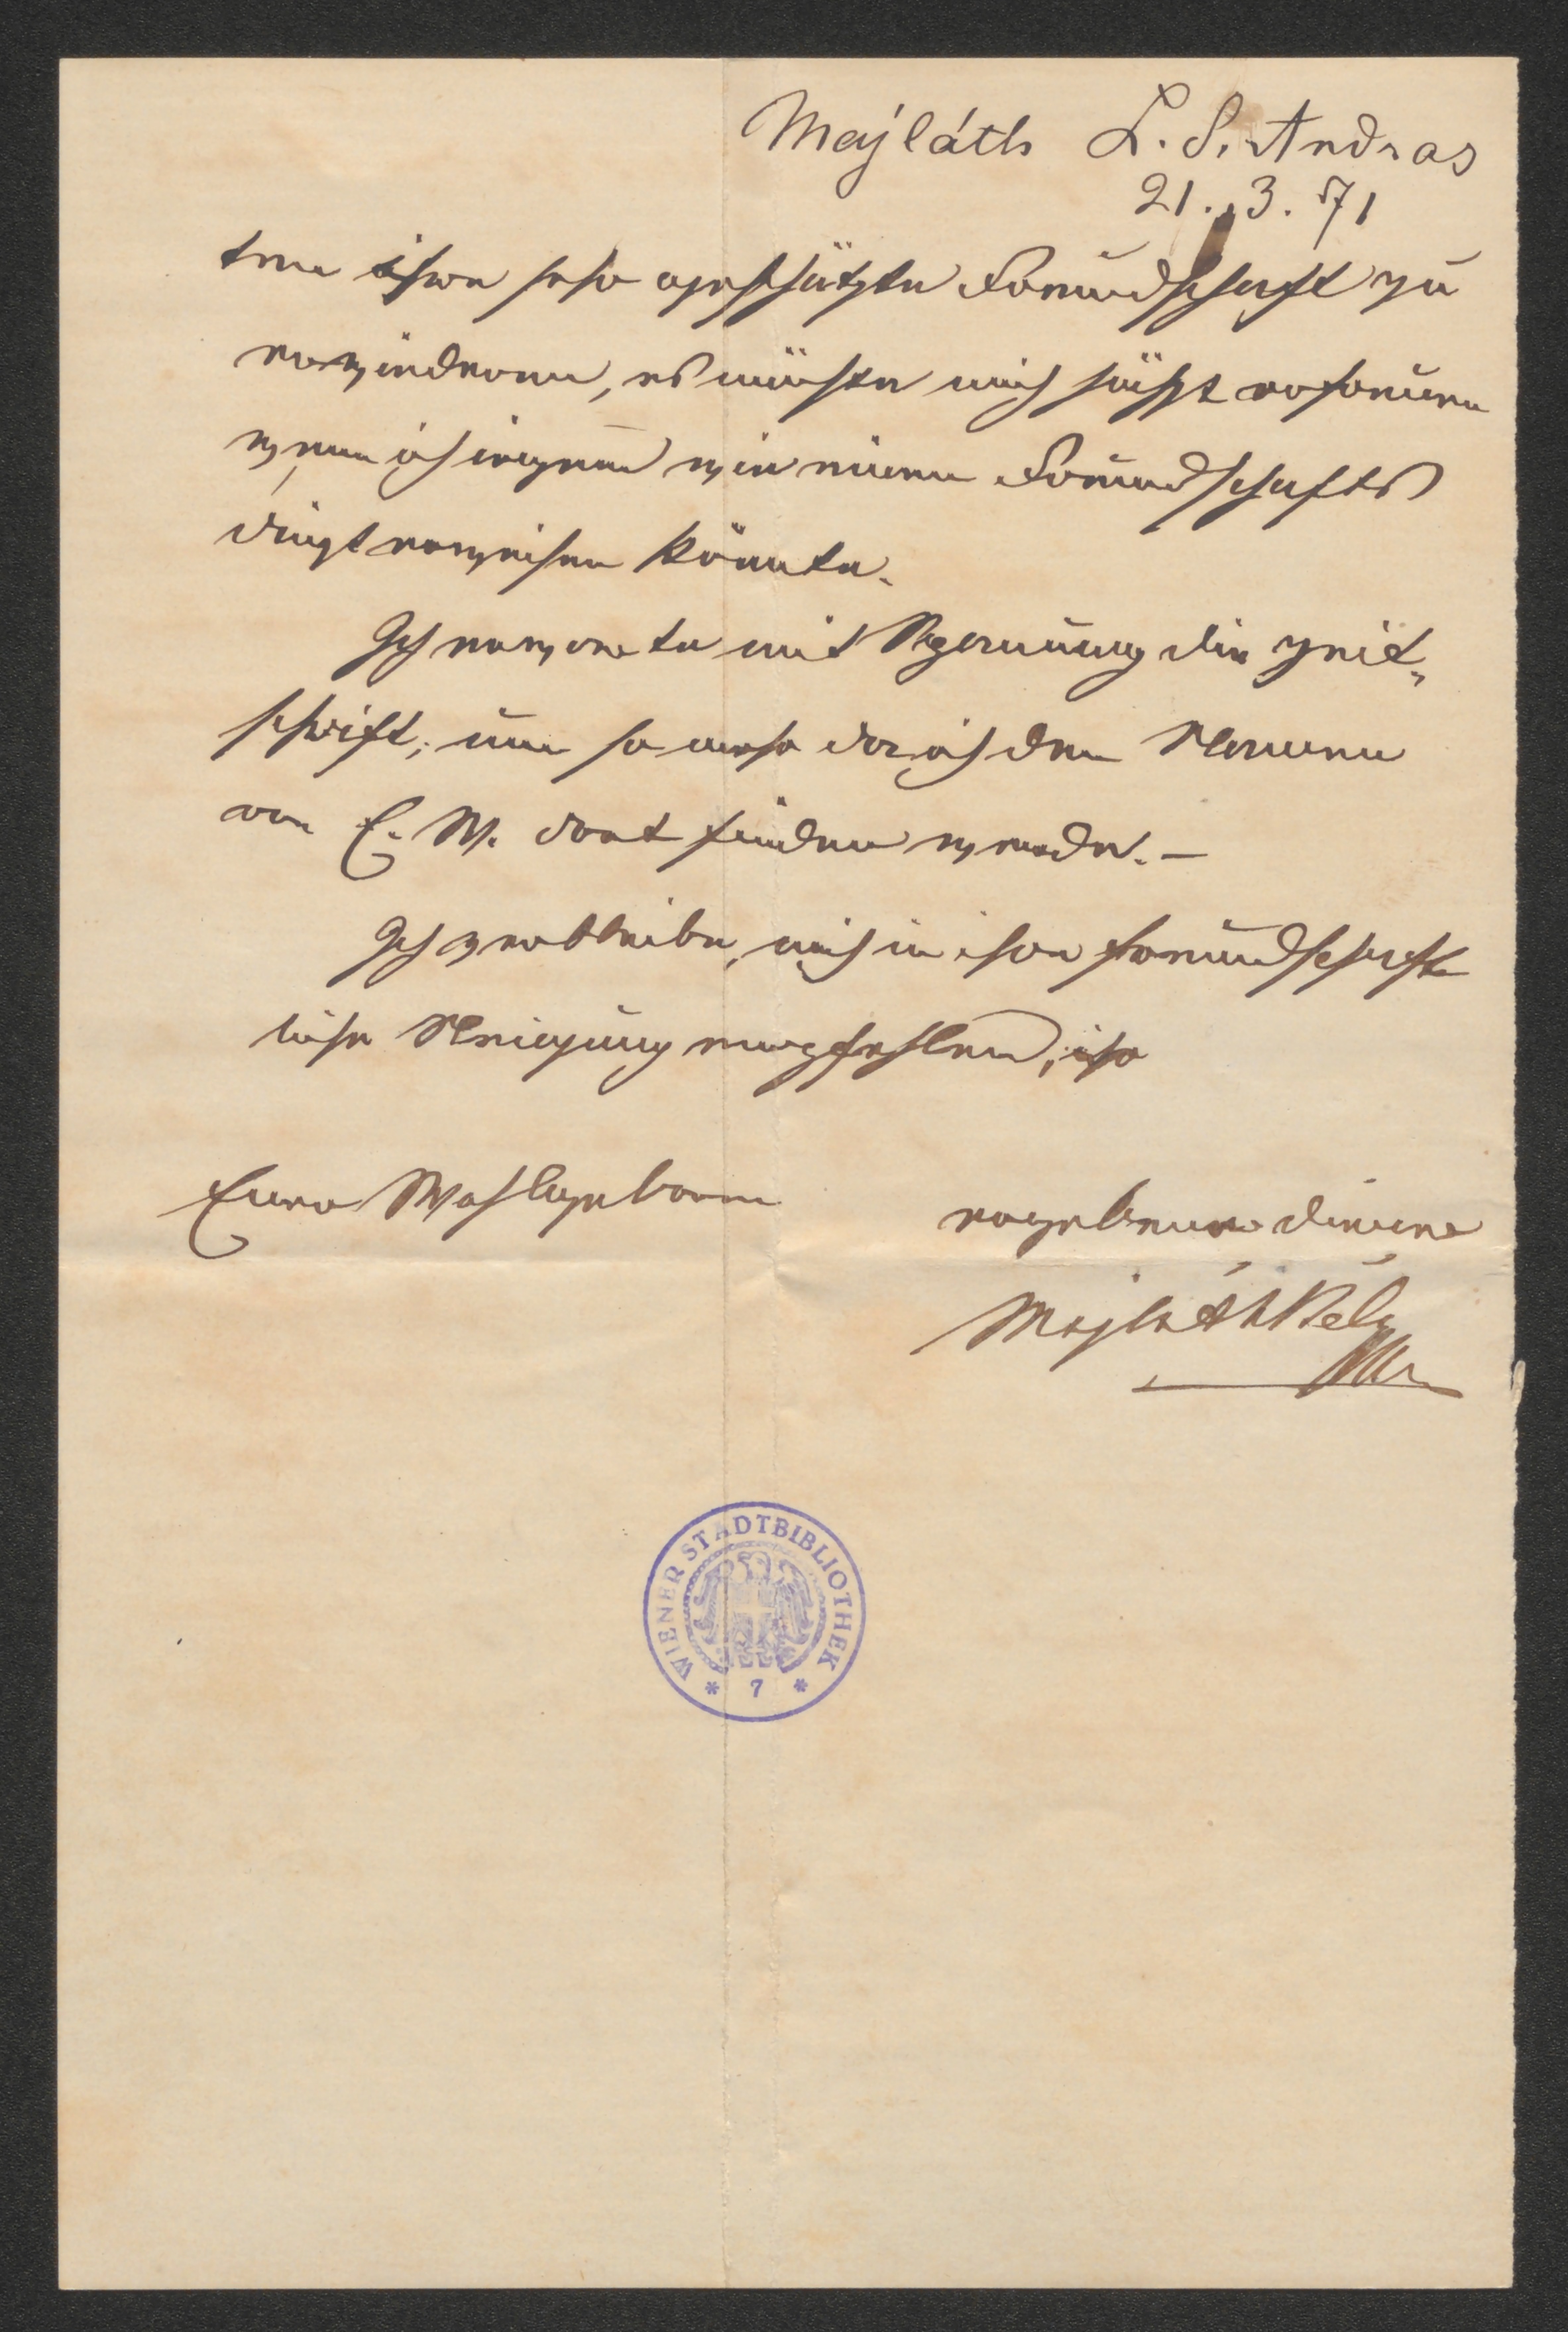 Majláth L. S. Andras
21. 3. 71
ten ihre sehr geschätzte Freundschaft zu
erwiedern, es müßte mich höchst erfreuen
wenn ich irgend wie einen Freundschafts
dienst erweisen könnte.
Ich erwarte mit Spannung die Zeit-
schrift, um so mehr da ich den Namen
von E. W. dort finden werde. –
Ich verbleibe, mich in ihre freundschaft
liche Neigung empfehlend, ihr
Euer Wohlgeboren
ergebener Diener
Majláth Béla
WIENER STADTBIBLIOTHEK
* 7 *